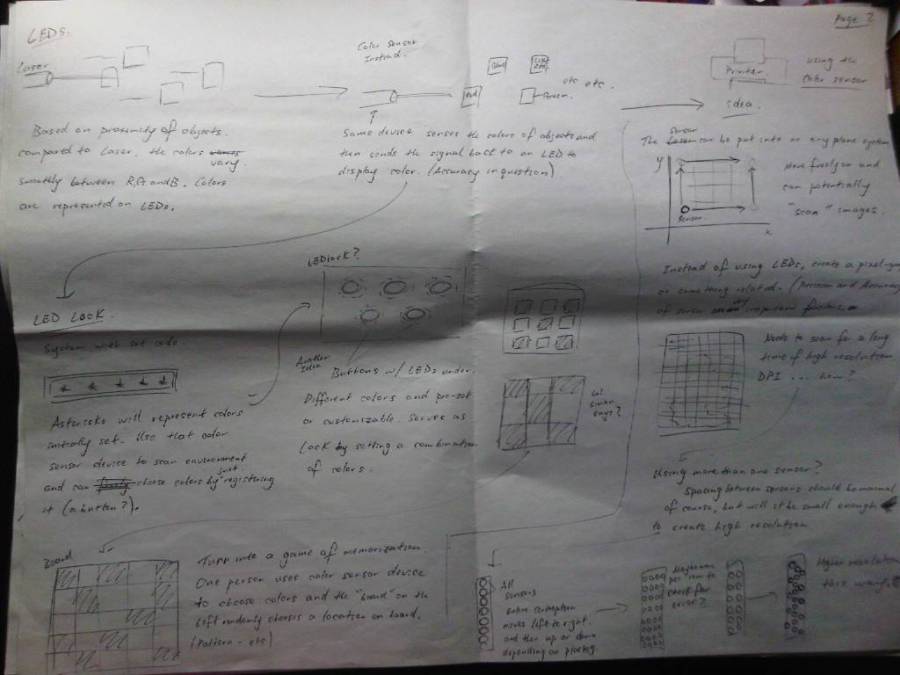 LEDs.
Page 2
Laser
Based on proximity of objects
compared to Laser, the colors
vary
smoothly between R, G and B. Colors
are represented on LEDs.
Color Sensor
Instead.
etc etc.
Same device senses the colors of objects and
then sends the signal back to an LED to
display color. (Accuracy in question)
Printer
using the
color sensor
idea.
Sensor
The can be put into an any plane system
y
x
Sensor
Move freely on and
can potentially
"scan" images.
Instead of using LEDs, create a
or something related. (Precision and Accuracy
of sensor important
Needs to scan for a long
time if high resolution
DPI ... how?
Using more than one sensor?
Spacing between sensors should be minimal
of course, but will it be small enough
to create high resolution
LED LOCK.
System with set code
Asterisks will represent colors
initially set. Use that color
sensor device to scan environment
and can choose colors by just registering
it (a button?).
LED lock?
Another
Idea
Buttons w/ LEDs under.
Different colors and pre-set
or customizable. Serves as
Lock by setting a combination
of colors.
Board
Turn into a game of memorization
One person uses color sensor device
to choose colors and the "board" on the
left randomly chooses a location on board.
(Pattern - etc)
All
sensors
moves left to right
and then up or down
depending on
Higher resolution
this way?